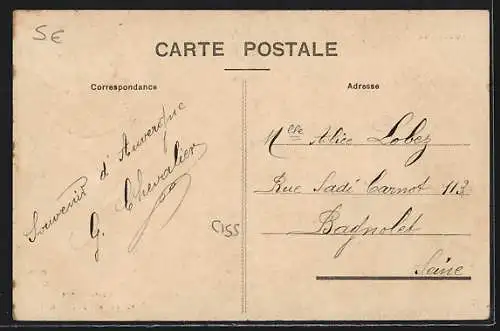 5€
CARTE POSTALE
Correspondance
Adresse
Souvenir d'Auvergne
G. Chevalier
C155
Mlle Alice Lobez
Rue Sadi Carnot 113
Bagnolet
Seine